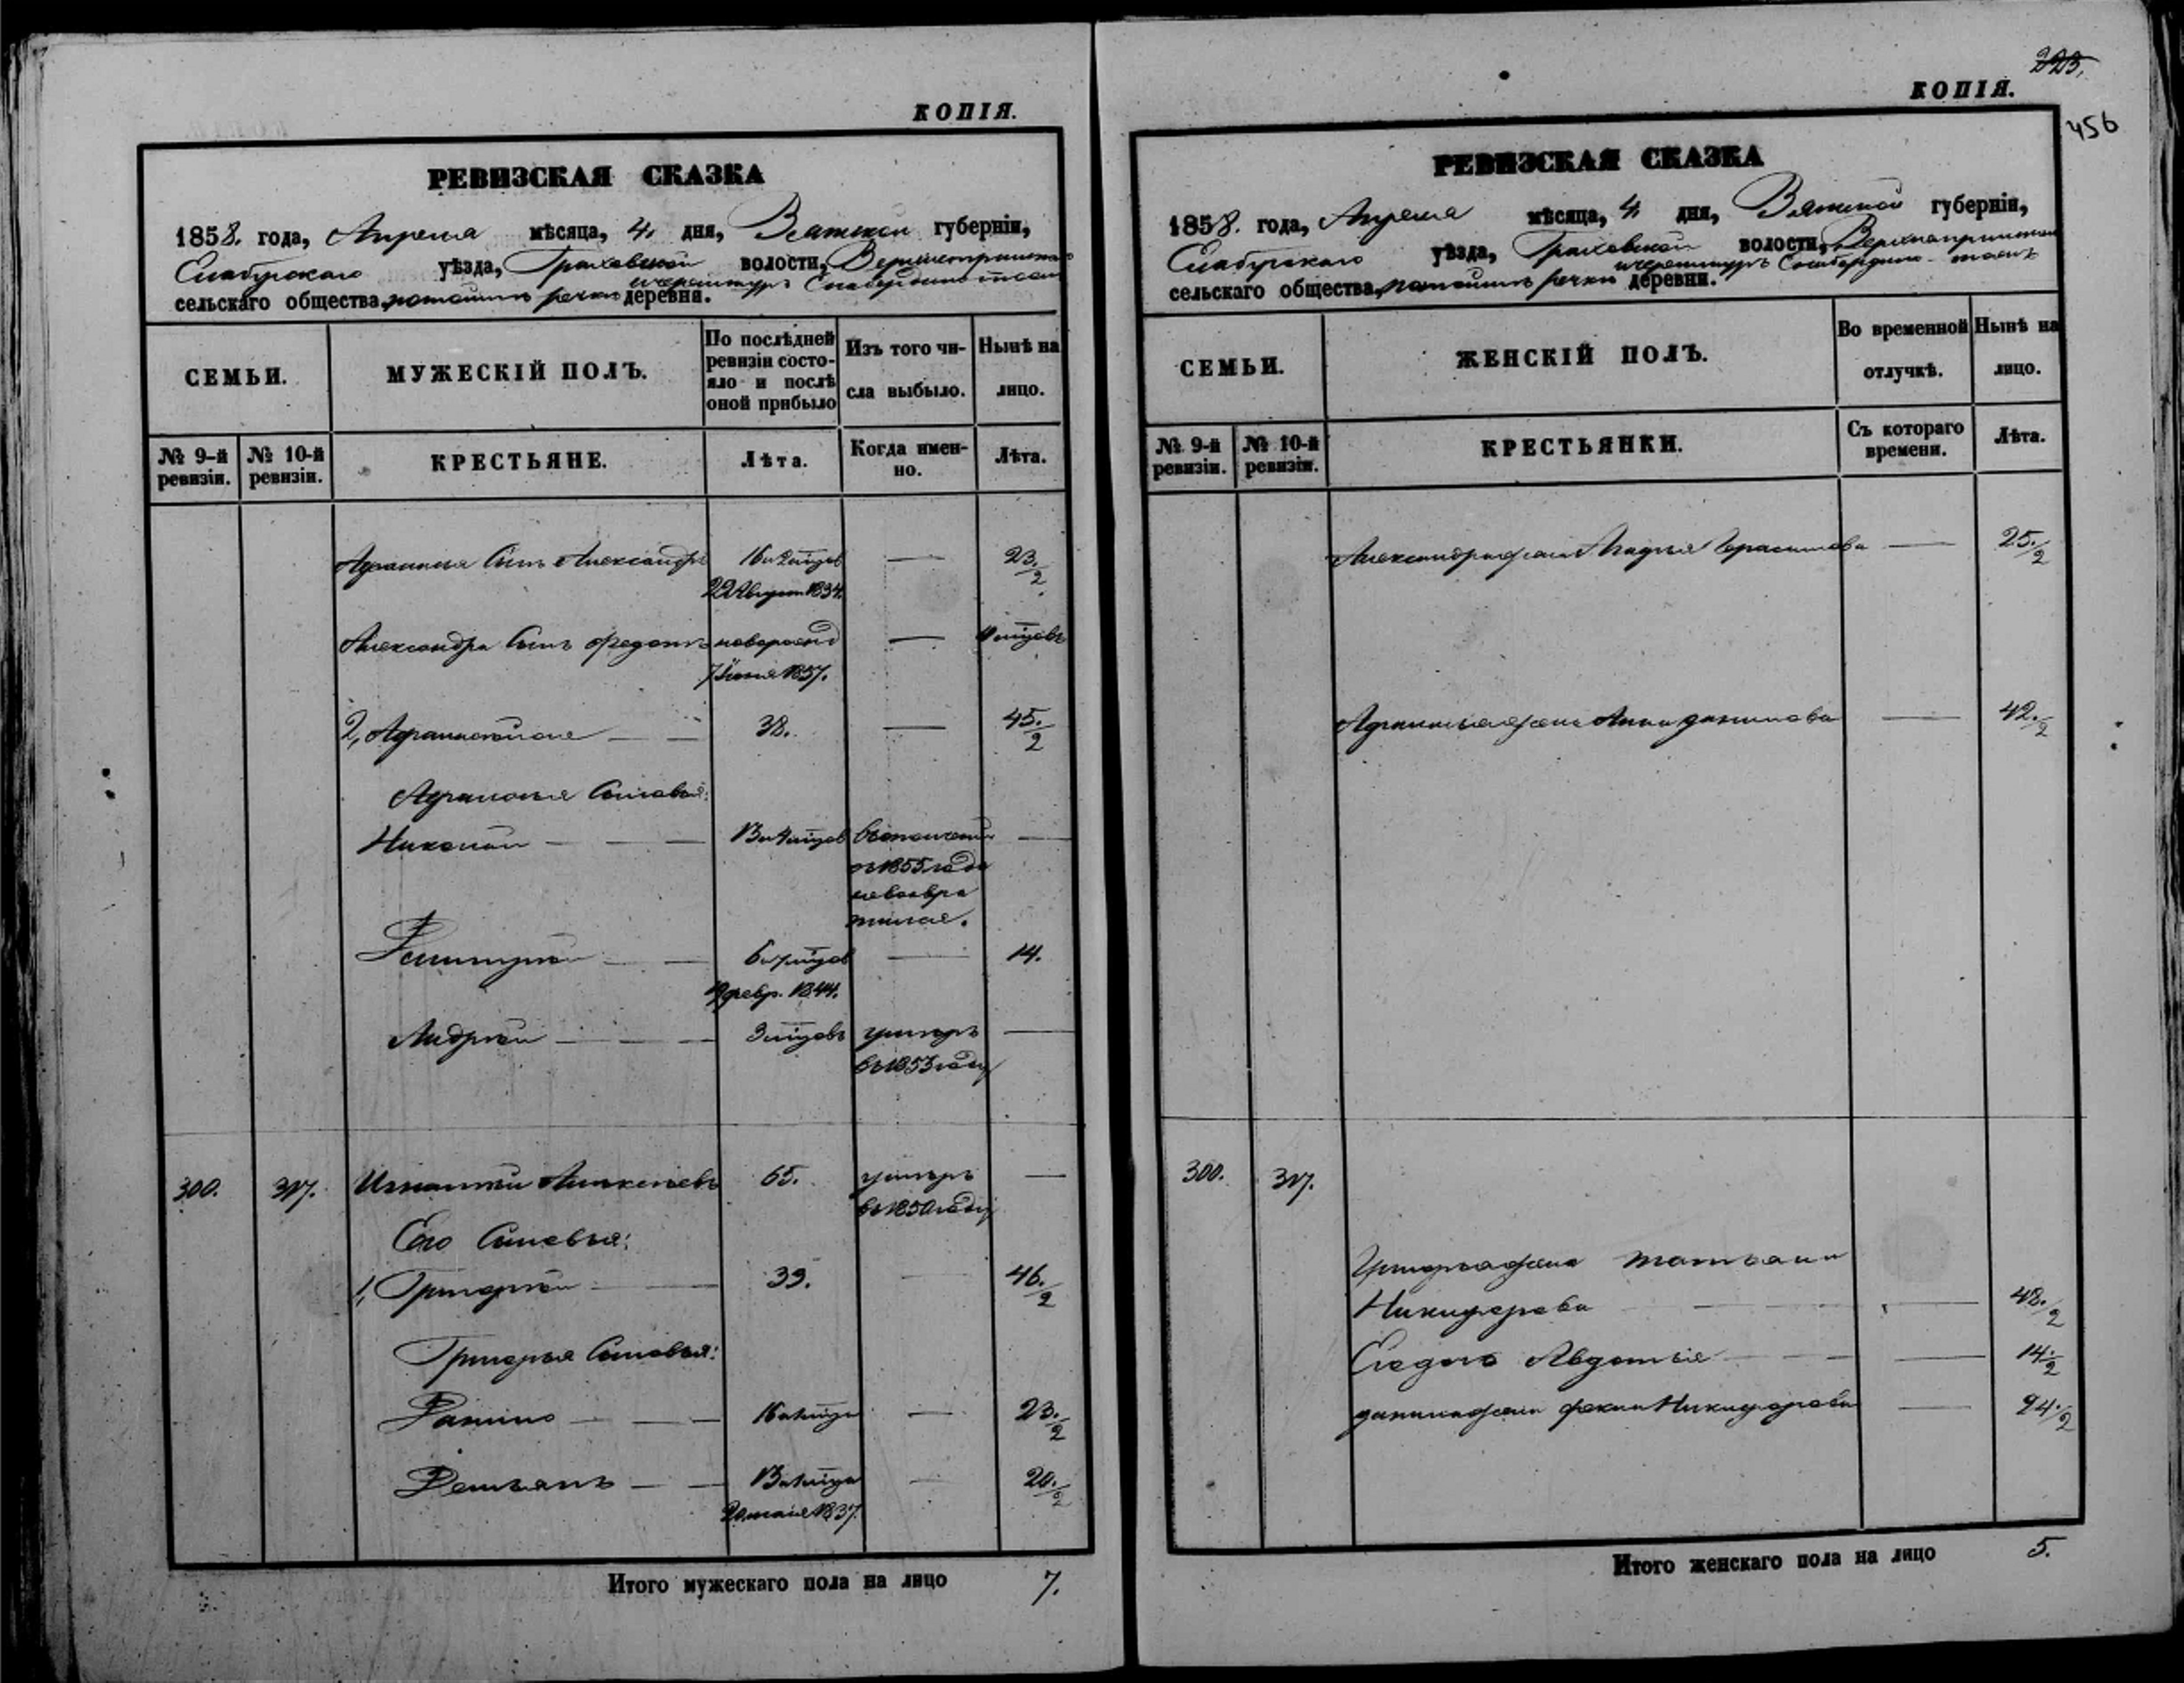 КОПІЯ.
РЕВИЗСКАЯ СКАЗКА
1858. года, Апреля мѣсяца, 4. дня, Вятской губерніи,
Елабужскаго уѣзда, Граховской волости,
сельскаго общества, речки деревни.
СЕМЬИ.
МУЖЕСКІЙ ПОЛЪ.
По послѣдней
ревизіи состо-
яло и послѣ
оной прибыло
Изъ того чи-
сла выбыло.
Нынѣ на
лицо.
№ 9-й
ревизіи.
№ 10-й
ревизіи.
КРЕСТЬЯНЕ.
Лѣта.
Когда имен-
но.
Лѣта.
сынъ Александръ 23.½
22 Август. 1834.
Александра сынъ Федотъ новорожд
7 Іюня 1857.
2, 38. 45.½
сыновья:
Николай
съ 1855 года
невозвра
тился.
Дмитрій 14.
февр. 1844.
Андрей 3 мѣцовъ умеръ
въ 1853 году
300. 317. Игнатій 65. умеръ
въ 1850 году
Его сыновья:
1, Григорій 39. 46.½
Григорья сыновья:
Данило 23.½
Демьянъ 20.½
20 маія 1837.
Итого мужескаго пола на лицо 7.
223.
КОПІЯ.
456
РЕВИЗСКАЯ СКАЗКА
1858. года, Апреля мѣсяца, 4. дня, Вятской губерніи,
Елабужскаго уѣзда, Граховской волости,
сельскаго общества, речки деревни.
СЕМЬИ.
ЖЕНСКІЙ ПОЛЪ.
Во временной
отлучкѣ.
Нынѣ на
лицо.
№ 9-й
ревизіи.
№ 10-й
ревизіи.
КРЕСТЬЯНКИ.
Съ котораго
времени.
Лѣта.
Александра жена Марья Герасимова 25.½
жена Анна Данилова 42.½
300. 317.
Григорья жена Татьяна
Никифорова 48.½
Его дочь Авдотья 14.½
Данила жена Фекла Никифорова 24.½
Итого женскаго пола на лицо 5.